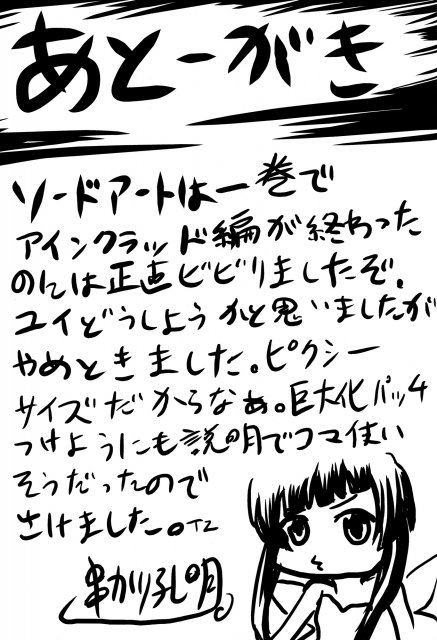 あとーがき
ソードアートは一巻で
アインクラッド編が終わった
のには正直ビビりましたぞ。
ユイどうしようかと思いましたが
やめときました。ピクシー
サイズだからなぁ。巨大化パッチ
つけようにも説明でコマ使い
そうだったので
さけました。
串かつ孔明。